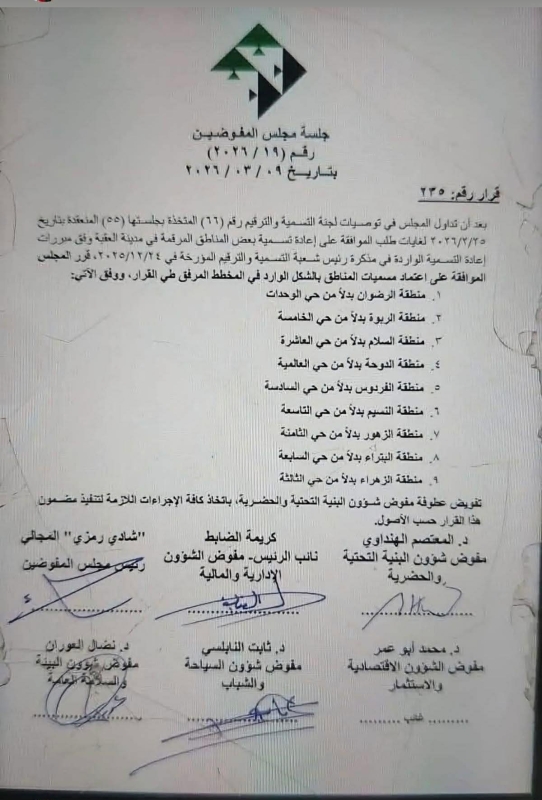 جلسة مجلس المفوضين
رقم (٢٠٢٦/١٩)
بتاريخ ٢٠٢٦/٠٣/٠٩
قرار رقم: ٢٣٥
بعد أن تداول المجلس في توصيات لجنة التسمية والترقيم رقم (٦٦) المتخذة بجلستها (٥٥) المنعقدة بتاريخ
٢٠٢٦/٢/٢٥ لغايات طلب الموافقة على إعادة تسمية بعض المناطق المرقمة في مدينة العقبة وفق مبررات
إعادة التسمية الواردة في مذكرة رئيس شعبة التسمية والترقيم المؤرخة في ٢٠٢٥/١٢/٢٤، قرر المجلس
الموافقة على اعتماد مسميات المناطق بالشكل الوارد في المخطط المرفق طي القرار، ووفق الآتي:
١. منطقة الرضوان بدلاً من حي الوحدات
٢. منطقة الربوة بدلاً من حي الخامسة
٣. منطقة السلام بدلاً من حي العاشرة
٤. منطقة الدوحة بدلاً من حي العالمية
٥. منطقة الفردوس بدلاً من حي السادسة
٦. منطقة النسيم بدلاً من حي التاسعة
٧. منطقة الزهور بدلاً من حي الثامنة
٨. منطقة البتراء بدلاً من حي السابعة
٩. منطقة الزهراء بدلاً من حي الثالثة
تفويض عطوفة مفوض شؤون البنية التحتية والحضرية، باتخاذ كافة الإجراءات اللازمة لتنفيذ مضمون
هذا القرار حسب الأصول.
د. المعتصم الهنداوي
مفوض شؤون البنية التحتية
والحضرية
كريمة الضابط
نائب الرئيس- مفوض الشؤون
الإدارية والمالية
"شادي رمزي" المجالي
رئيس مجلس المفوضين
د. محمد أبو عمر
مفوض الشؤون الاقتصادية
والاستثمار
د. ثابت النابلسي
مفوض شؤون السياحة
والشباب
د. نضال العوران
مفوض شؤون البيئة
والسلامة العامة